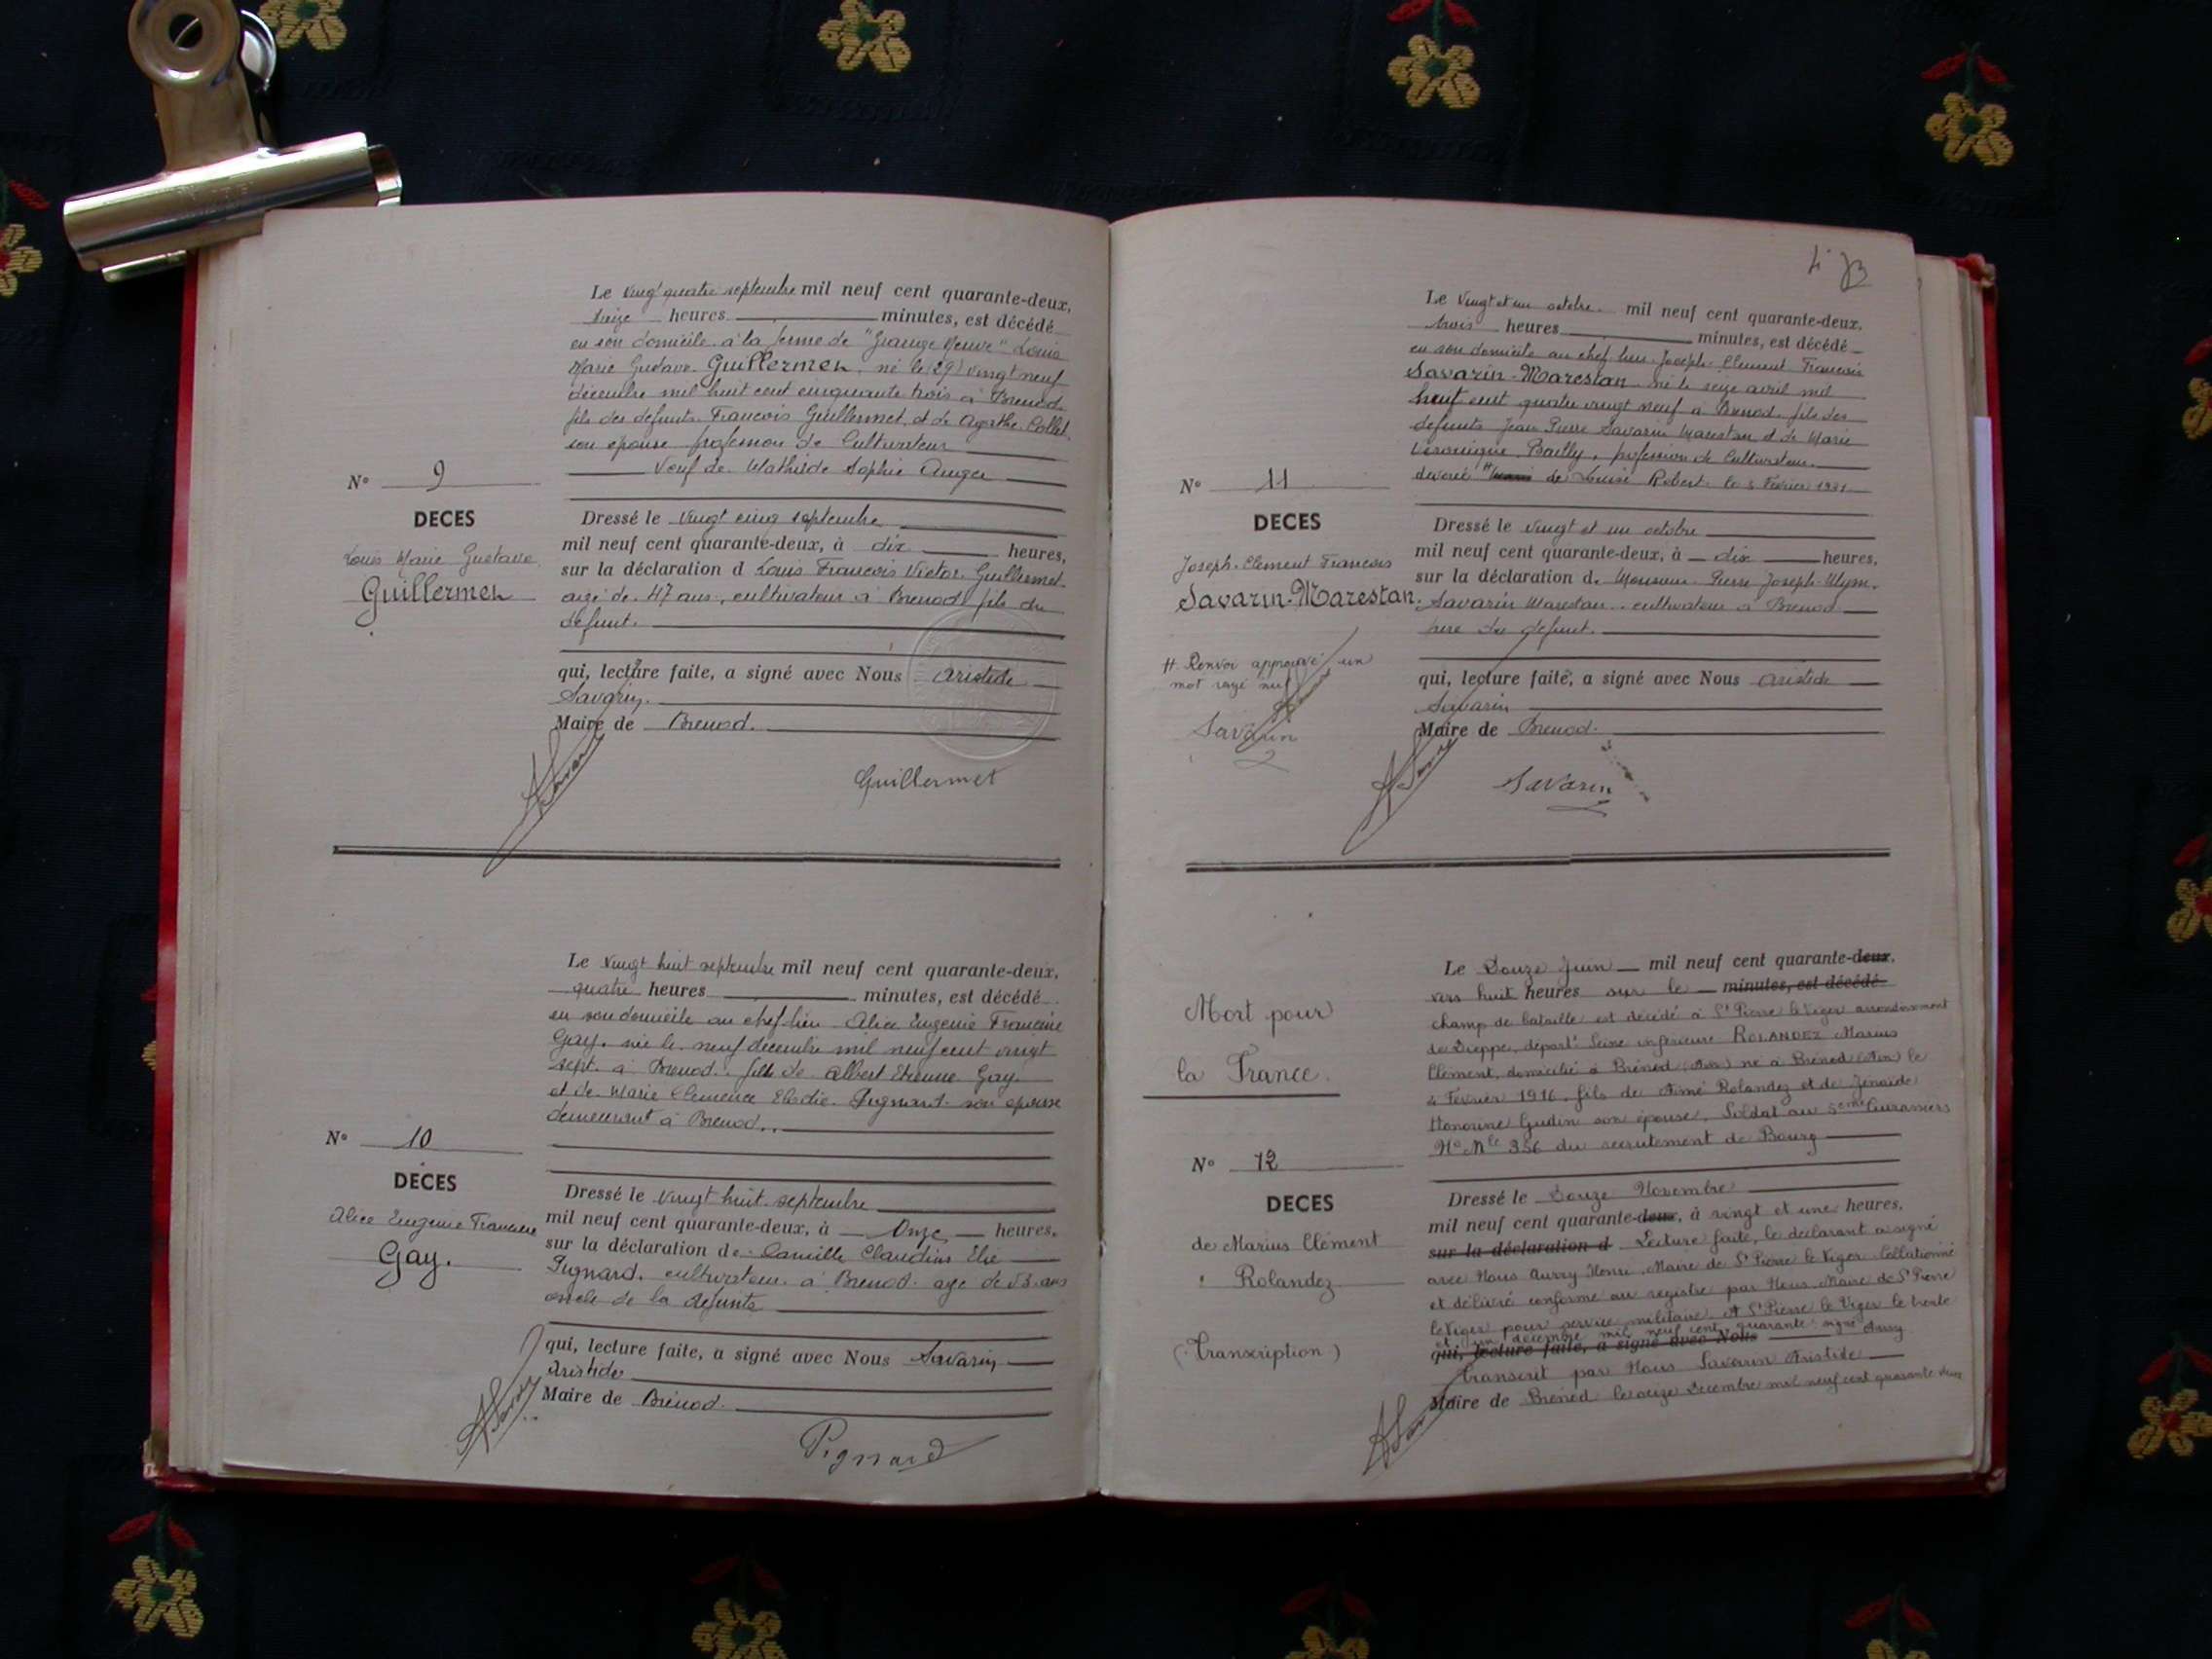 Le vingt quatre septembre mil neuf cent quarante-deux,
seize heures minutes, est décédé
en son domicile à la ferme de "Grange Neuve" Louis
Marie Gustave Guillermet né le (29) vingt neuf
décembre mil huit cent cinquante trois à Brenod
fils des défunts François Guillermet et de Agathe Collet
son épouse profession de Cultivateur
Veuf de Mathilde Sophie Auger
N° 9
DECES
Louis Marie Gustave
Guillermet
Dressé le vingt cinq septembre
mil neuf cent quarante-deux, à dix heures,
sur la déclaration d Louis François Victor Guillermet
agé de 47 ans, cultivateur à Brenod fils du
défunt.
qui, lecture faite, a signé avec Nous Aristide
Savarin
Maire de Brenod.
Guillermet
Le vingt huit septembre mil neuf cent quarante-deux,
quatre heures minutes, est décédé
en son domicile au chef lieu Alice Eugenie Francine
Gay, née le neuf décembre mil neuf cent vingt
sept à Brenod, fille de Albert Etienne Gay
et de Marie Clemence Elodie Pignard son épouse
demeurant à Brenod..
N° 10
DECES
Alice Eugenie Francine
Gay.
Dressé le vingt huit septembre
mil neuf cent quarante-deux, à Onze heures,
sur la déclaration de Camille Claudius Elie
Pignard, cultivateur à Brenod age de 53 ans
oncle de la defunte
qui, lecture faite, a signé avec Nous Savarin
Aristide
Maire de Brénod.
Pignard
Le vingt et un octobre mil neuf cent quarante-deux,
trois heures minutes, est décédé
en son domicile au chef lieu Joseph Clement François
Savarin-Marestan né le seize avril mil
huit cent quatre vingt neuf à Brenod fils des
defunts Jean Pierre Savarin Marestan et de Marie
Véronique Bailly, profession de Cultivateur.
divorcé de Louise Robert le 5 Février 1931
N° 11
DECES
Joseph Clement François
Savarin-Marestan.
# Renvoi approuvé un
mot rayé nul
Savarin
Dressé le vingt et un octobre
mil neuf cent quarante-deux, à dix heures,
sur la déclaration d. Monsieur Pierre Joseph
Savarin Marestan cultivateur à Brenod
du défunt.
qui, lecture faite, a signé avec Nous Aristide
Savarin
Maire de Brenod.
Savarin
Mort pour
la France.
Le Douze Juin mil neuf cent quarante-deux,
vers huit heures sur le minutes, est décédé
champ de bataille est décédé à St Pierre le Viger arrondissement
de Dieppe, départt Seine inférieure ROLANDEZ Marius
Clément, domicilié à Brénod (Ain) né à Brénod (Ain) le
4 Février 1916, fils de Aimé Rolandez et de Zénaïde
Honorine Gudin son épouse. Soldat au 5eme Cuirassiers
No Mle 356 du recrutement de Bourg
N° 12
DECES
de Marius Clément
Rolandez
(Transcription)
Dressé le Douze Novembre
mil neuf cent quarante-deux, à vingt et une heures,
sur la déclaration d Lecture faite, le déclarant a signé
avec Nous Auvry Henri, Maire de St Pierre le Viger. Collationné
et délivré conforme au registre par Nous Maire de St Pierre
le Viger pour service militaire. A St Pierre le Viger le trente
et un décembre mil neuf cent quarante signé Auvry
qui, lecture faite, a signé avec Nous
Transcrit par Nous Savarin Aristide
Maire de Brénod le seize Décembre mil neuf cent quarante deux